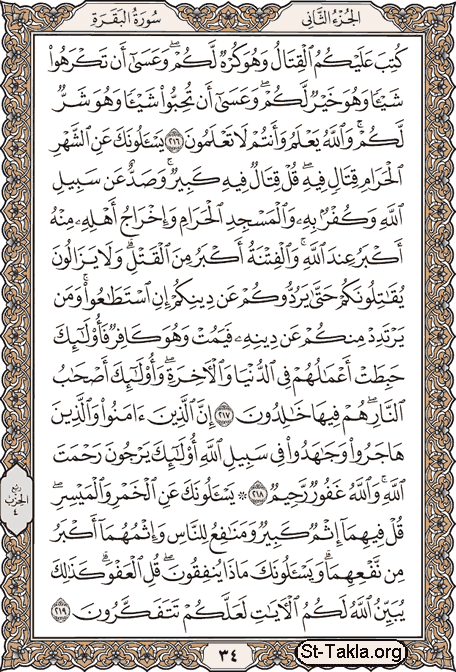 سُورَةُ البَقَرَةِ الجُزْءُ الثَّانِي
كُتِبَ عَلَيْكُمُ ٱلْقِتَالُ وَهُوَ كُرْهٌ لَّكُمْ ۖ وَعَسَىٰٓ أَن تَكْرَهُوا۟
شَيْـًٔا وَهُوَ خَيْرٌ لَّكُمْ ۖ وَعَسَىٰٓ أَن تُحِبُّوا۟ شَيْـًٔا وَهُوَ شَرٌّ
لَّكُمْ ۗ وَٱللَّهُ يَعْلَمُ وَأَنتُمْ لَا تَعْلَمُونَ ٢١٦ يَسْـَٔلُونَكَ عَنِ ٱلشَّهْرِ
ٱلْحَرَامِ قِتَالٍ فِيهِ ۖ قُلْ قِتَالٌ فِيهِ كَبِيرٌ ۖ وَصَدٌّ عَن سَبِيلِ
ٱللَّهِ وَكُفْرٌۢ بِهِۦ وَٱلْمَسْجِدِ ٱلْحَرَامِ وَإِخْرَاجُ أَهْلِهِۦ مِنْهُ
أَكْبَرُ عِندَ ٱللَّهِ ۚ وَٱلْفِتْنَةُ أَكْبَرُ مِنَ ٱلْقَتْلِ ۗ وَلَا يَزَالُونَ
يُقَـٰتِلُونَكُمْ حَتَّىٰ يَرُدُّوكُمْ عَن دِينِكُمْ إِنِ ٱسْتَطَـٰعُوا۟ ۚ وَمَن
يَرْتَدِدْ مِنكُمْ عَن دِينِهِۦ فَيَمُتْ وَهُوَ كَافِرٌ فَأُو۟لَـٰٓئِكَ
حَبِطَتْ أَعْمَـٰلُهُمْ فِى ٱلدُّنْيَا وَٱلْـَٔاخِرَةِ ۖ وَأُو۟لَـٰٓئِكَ أَصْحَـٰبُ
ٱلنَّارِ ۖ هُمْ فِيهَا خَـٰلِدُونَ ٢١٧ إِنَّ ٱلَّذِينَ ءَامَنُوا۟ وَٱلَّذِينَ
هَاجَرُوا۟ وَجَـٰهَدُوا۟ فِى سَبِيلِ ٱللَّهِ أُو۟لَـٰٓئِكَ يَرْجُونَ رَحْمَتَ
ٱللَّهِ ۚ وَٱللَّهُ غَفُورٌ رَّحِيمٌ ٢١٨ ۞ يَسْـَٔلُونَكَ عَنِ ٱلْخَمْرِ وَٱلْمَيْسِرِ ۖ
قُلْ فِيهِمَآ إِثْمٌ كَبِيرٌ وَمَنَـٰفِعُ لِلنَّاسِ وَإِثْمُهُمَآ أَكْبَرُ
مِن نَّفْعِهِمَا ۗ وَيَسْـَٔلُونَكَ مَاذَا يُنفِقُونَ قُلِ ٱلْعَفْوَ ۗ كَذَٰلِكَ
يُبَيِّنُ ٱللَّهُ لَكُمُ ٱلْـَٔايَـٰتِ لَعَلَّكُمْ تَتَفَكَّرُونَ ٢١٩
ربع
الحزب
٤
٣٤
St-Takla.org